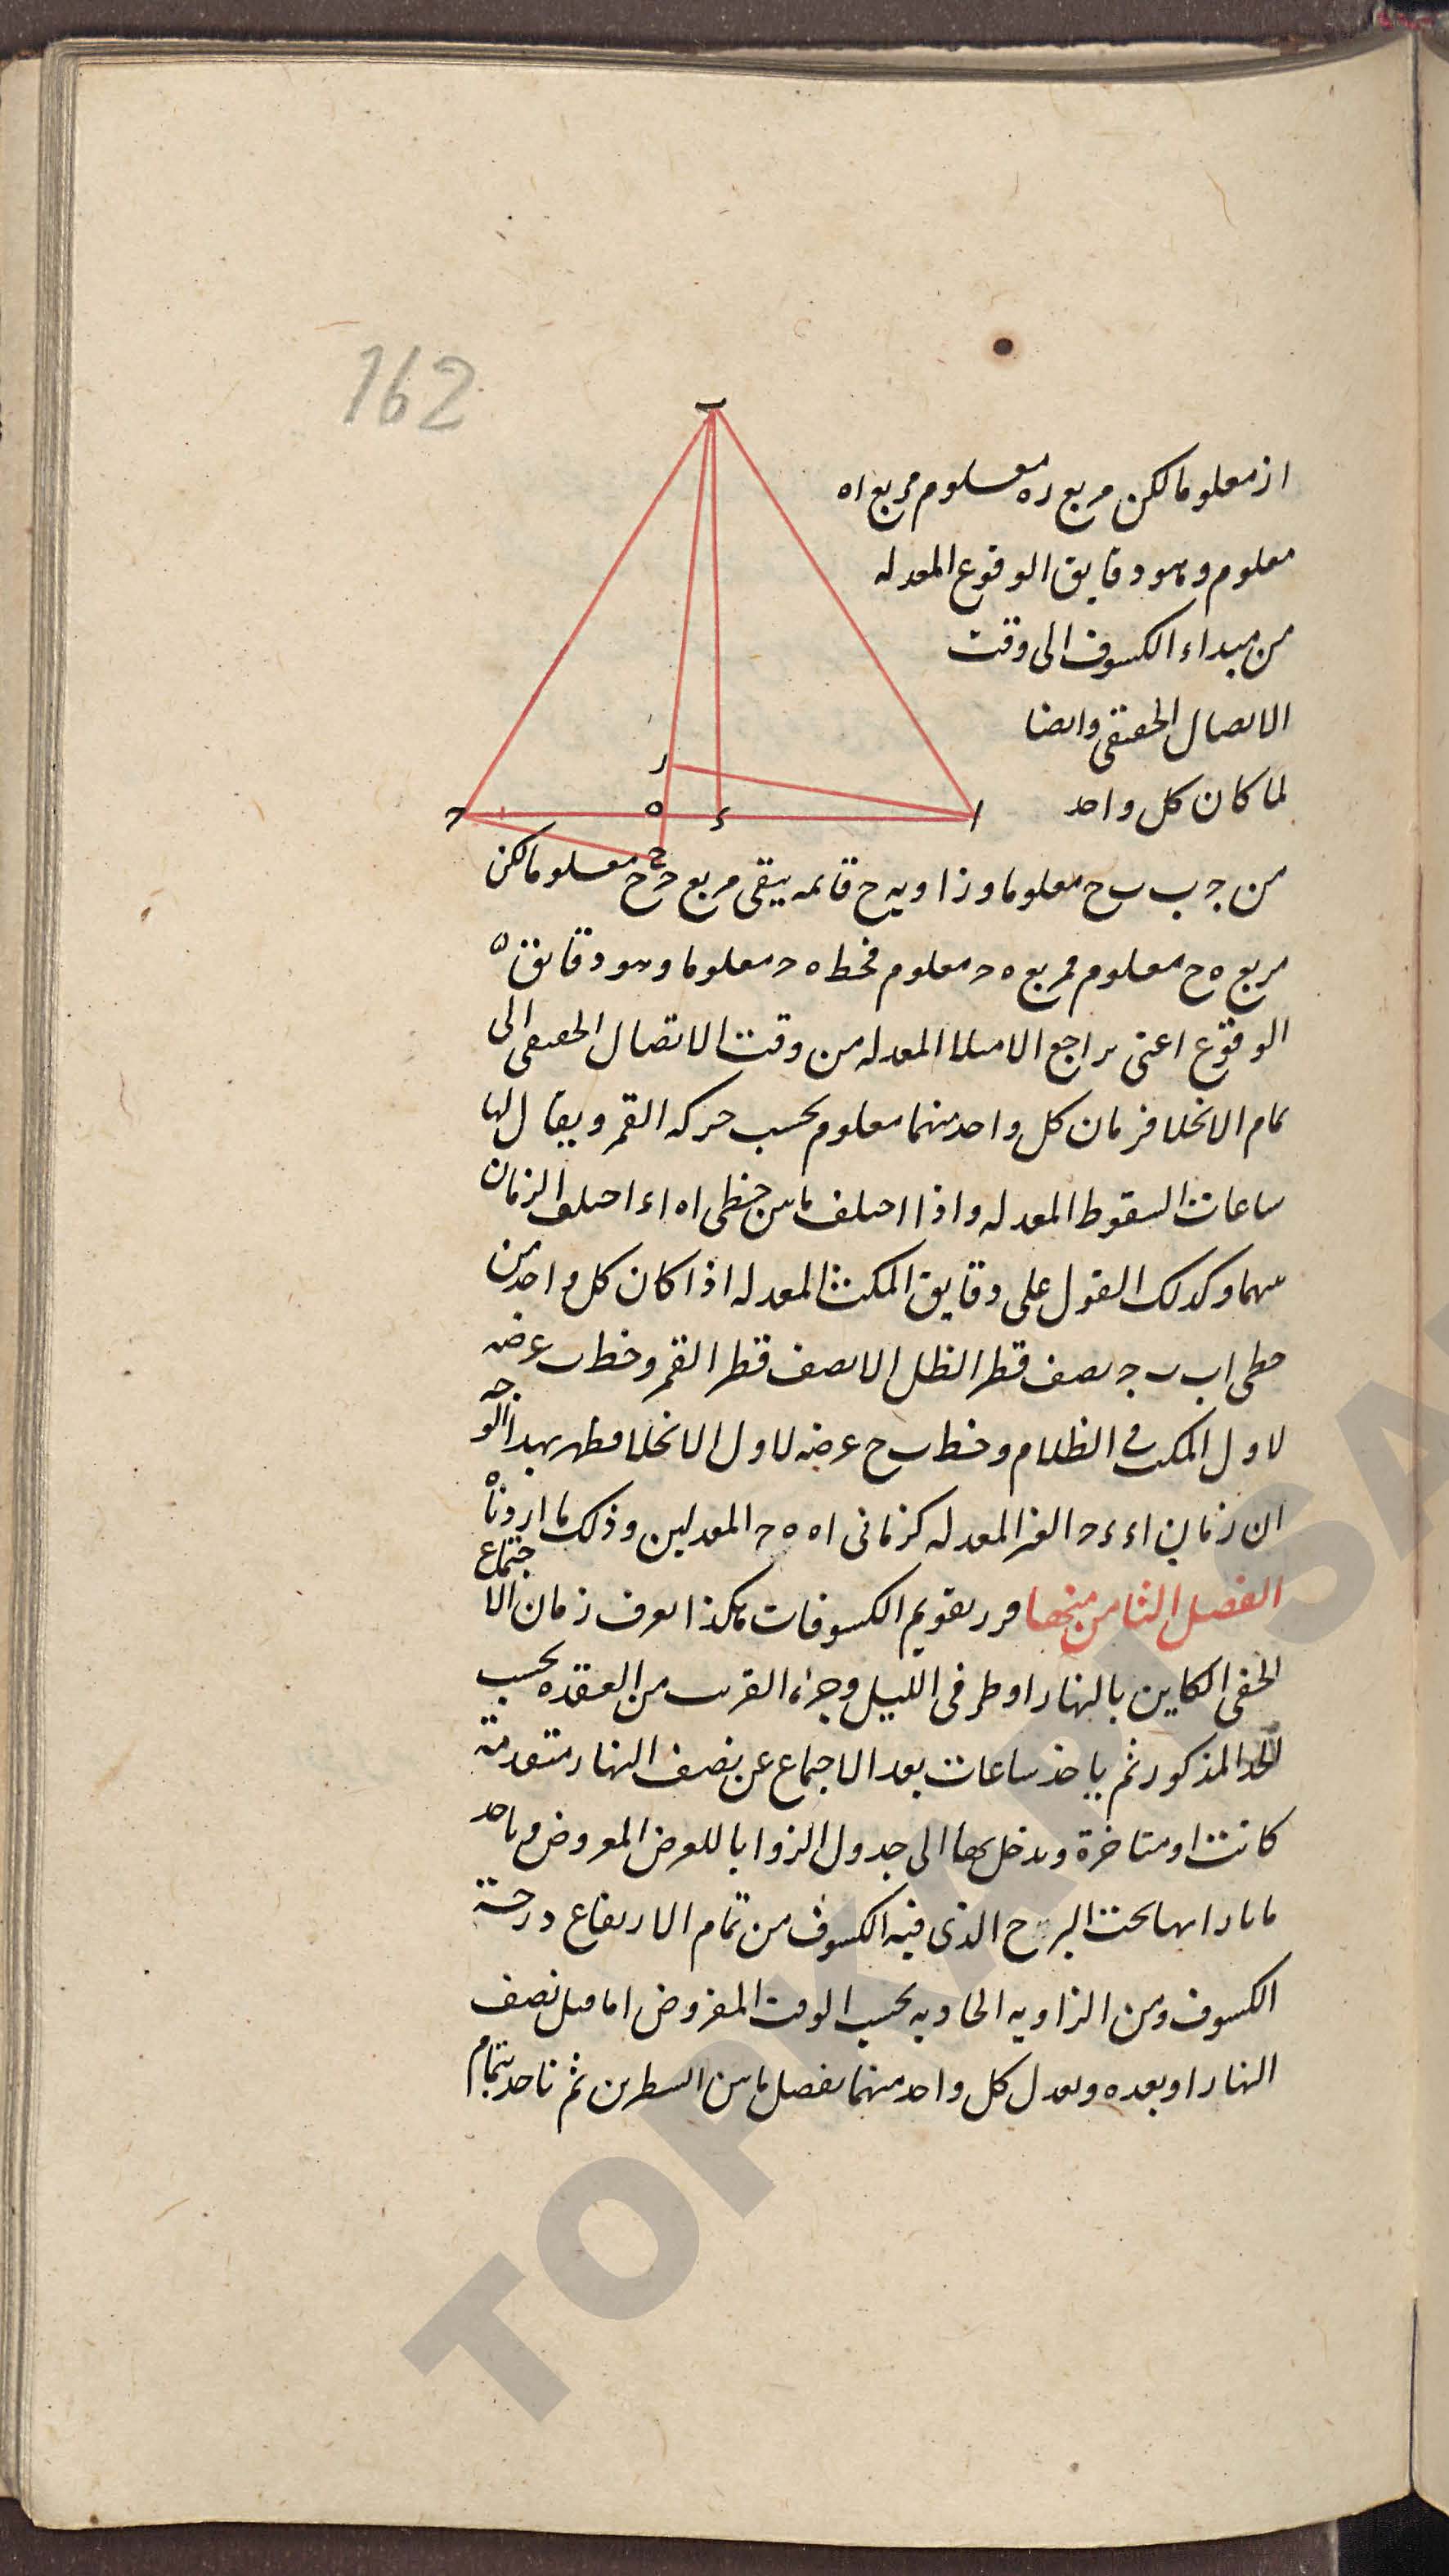 162
ب
ا ر معلوما لكن مربع ره معلوم فمربع اه
معلوم وهو دقايق الوقوع المعدله
من مبداء الكسوف الى وقت
الاتصال الحقيقى وايضا
لما كان كل واحد
ر
ه
ء
ا
ح
ح
من جـ ب ب ح معلوما وزاويه ح قائمه يبقى مربع حـ ح معلوما لكن
مربع ه ح معلوم فمربع ه حـ معلوم فخط ه حـ معلوما وهو دقايق
الوقوع اعنى تراجع الامتلا المعدله من وقت الاتصال الحقيقى الى
تمام الانجلا فزمان كل واحد منهما معلوم بحسب حركه القمر ويقال لها
ساعات السقوط المعدله واذا اختلف ما بين خطى اه اء اختلف الزمان
بينهما وكذلك القول على دقايق المكث المعدله اذا كان كل واحد من
خطى اب ب جـ نصف قطر الظل الا نصف قطر القمر وخط ب عرضه
لاول المكث فى الظلام وخط ب ح عرضه لاول الانجلا فظهر بهذا الوجه
ان زمانى اء ء حـ الغير المعدله كزمانى اه ه حـ المعدلين وذلك ما اردناه
الفصل الثامن منها فى تقويم الكسوفات هكذا تعرف زمان الاجتماع
الحقيقى الكاين بالنهار او طرفى الليل وجزء القرب من العقده بحسب
الحد المذكور ثم ياخذ ساعات بعد الاجتماع عن نصف النهار متقدمة
كانت او متاخرة وتدخل بها الى جدول الزوايا للعرض المعروض وياخذ
ما بازايها تحت البرج الذى فيه الكسوف من تمام الارتفاع درجة
الكسوف ومن الزاويه الحاديه بحسب الوقت المفروض اما قبل نصف
النهار او بعده وتعدل كل واحد منهما بفضل ما بين السطرين ثم تاخذ بتمام
TOPKAPI SA